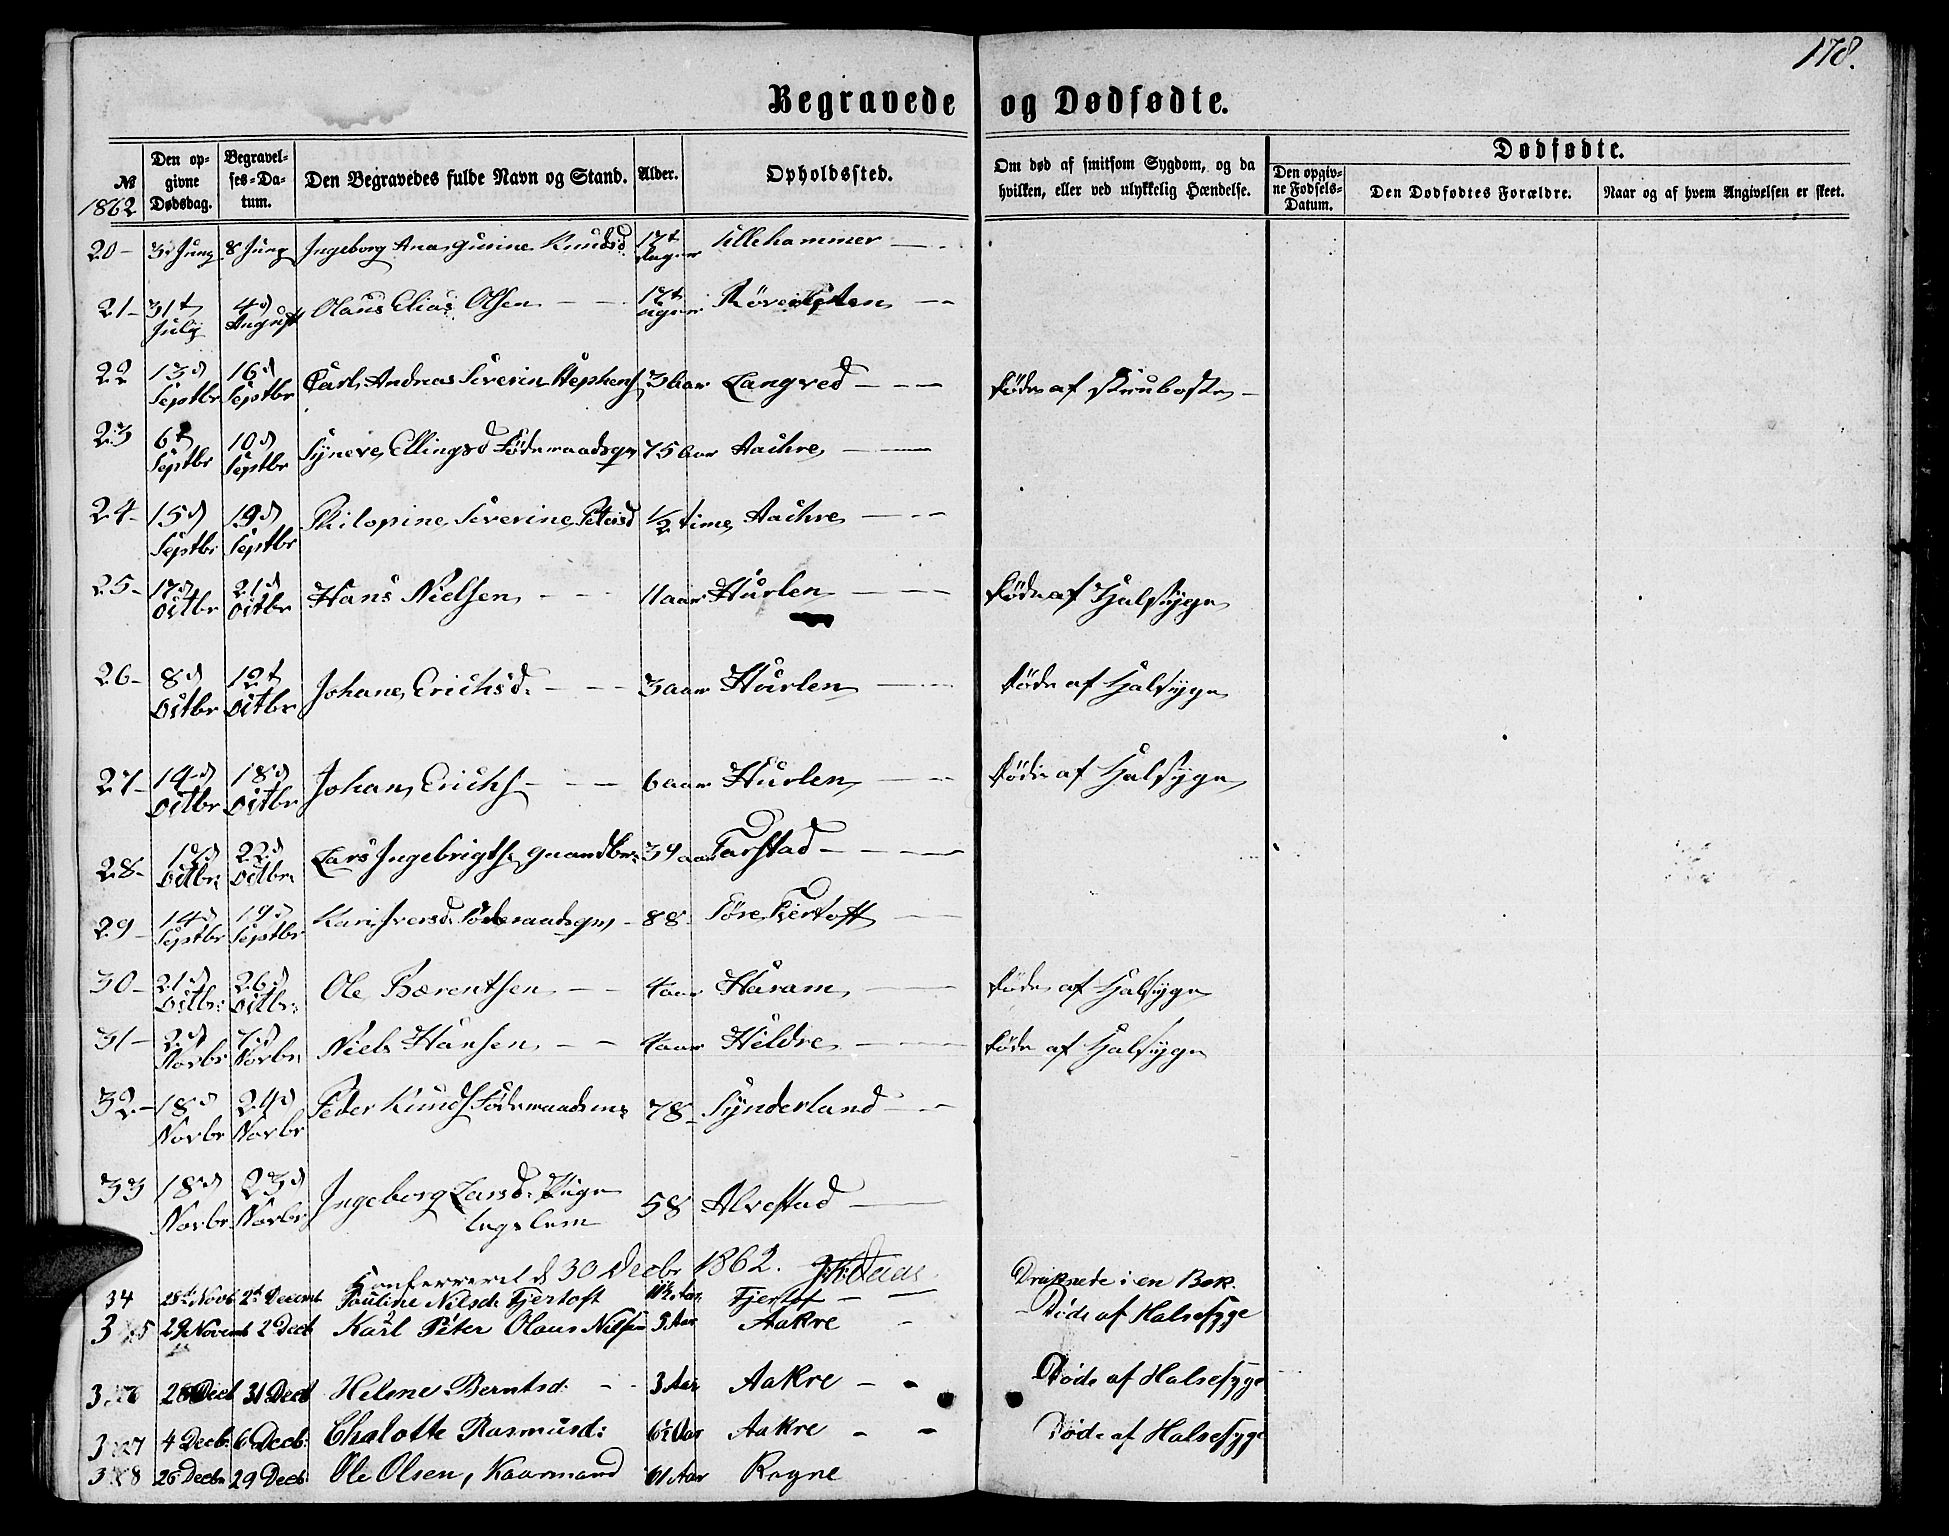 178.
Begravede og Dødfødte.
№
1862
Den op-
givne
Dødsdag.
Begravel-
ses-Da-
tum.
Den Begravedes fulde Navn og Stand.
Alder.
Opholdssted.
Om død af smitsom Sygdom, og da
hvilken, eller ved ulykkelig Hændelse.
Dødfødte.
Den opgiv-
ne Fødsels-
Datum.
Den Dødfødtes Forældre.
Naar og af hvem Angivelsen er skeet.
20- 3 Juny 8 Juny Ingeborg Ana Gurine Knudsd 17t dager Ullehammer
21- 31t July 4d August Olaus Elias Olsen 17t uger
22 13d Septbr 16d Septbr Carl Andreas Severin Stephens 3 aar Langved døde af
23 6t Septbr 10d Septbr Syneve Ellingsd Føderaadsgm 75 aar Aachre
24- 15d Septbr 19d Septbr Philopine Severine Petersd 1/2 time Aachre
25- 17d Octbr 21d Octbr Hans Nielsen 11 aar Hurlen døde af Halssyge
26- 8d Octbr 12t Octbr Johane Erichsd. 3 aar Hurlen døde af Halssyge
27- 14d Octbr 18d Octbr Johan Erichs 6 aar Hurlen døde af Halssyge
28- Octbr: 22d Octbr: Lars Ingebrigts Gaardbr: 39 aar Farstad
29- 14d Septbr 19d Septbr Kari Iversd: Føderaadsgm 88- Søre Fjertoft
30- 21d Octbr: 26d Octbr: Ole Bærentsen 4 aar Haram døde af Halssyge
31- 2d Novbr 7d Novbr Niels Hansen 4 aar Hildre døde af Halssyge
32- 18d Novbr 24d Novbr Peder Knuds Føderaadsm: 78- Synderland
33 18d Novbr 23d Novbr Ingeborg Larsd: Pige
Lægslem 58 Alvestad
Konfereret d 30 Decbr 1862.
34 28de Novb 2de Decemb Pauline Nilsd: Fjertoft 11½ Aar Fjertof Druknede i en Bæk.
35 29 Novemb 2 Decb Karl Peter Olaus Nilsen 3 Aar Aakre Døde af Halsesyge
36 28 Decb 31 Decb Helene Berntsd: 3 Aar Aakre Døde af Halsesyge
37 4 Decb: 6 Decb: Chalotte Rasmusd: 6½ Aar Aakre Døde af Halsesyge
38 26 Decbr 29 Decb Ole Olsen, Kaarmand 61 Aar Rogne